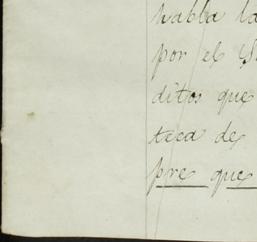 habla la
por el S
ditos que
teca de
pre que